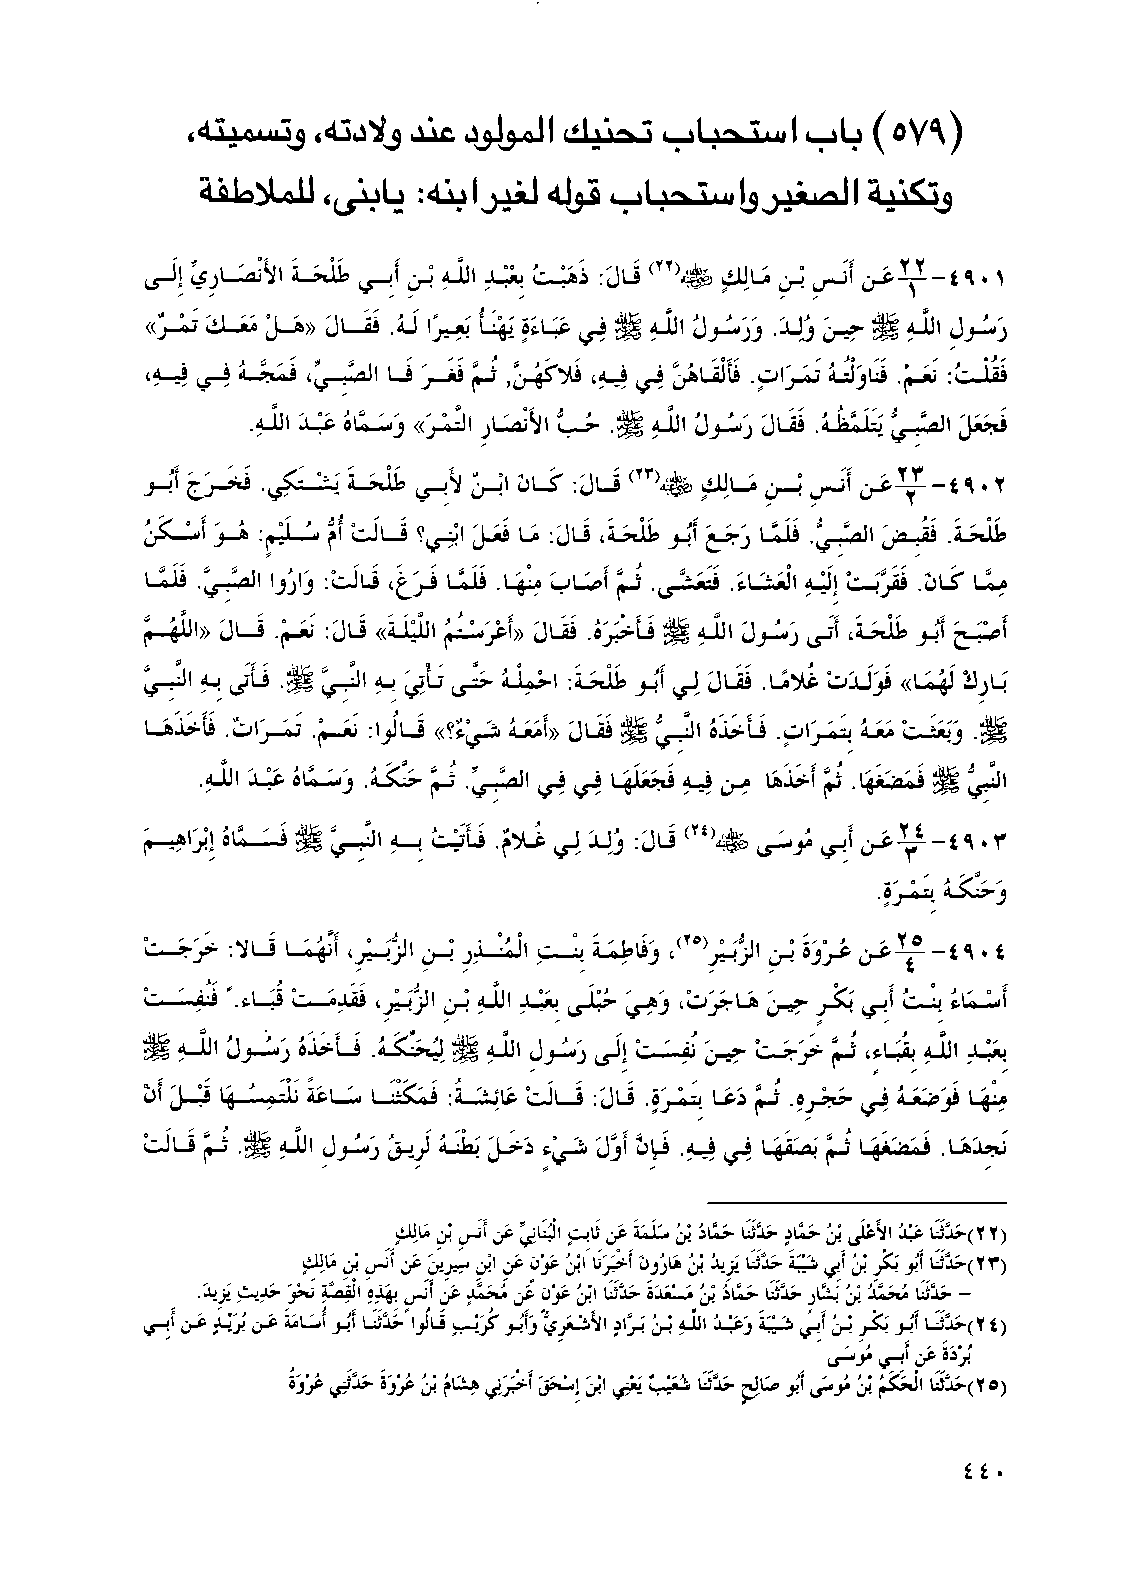 (٥٧٩) باب استحباب تحنيك المولود عند ولادته، وتسميته،
وتكنية الصغير واستحباب قوله لغير ابنه: يابنى، للملاطفة
٤٩٠١- ٢٢/١ عَنْ أَنَسِ بْنِ مَالِكٍ ﷺ(٢٢) قَالَ: ذَهَبْتُ بِعَبْدِ اللَّهِ بْنِ أَبِي طَلْحَةَ الأَنْصَارِيِّ إِلَى
رَسُولِ اللَّهِ ﷺ حِينَ وُلِدَ. وَرَسُولُ اللَّهِ ﷺ فِي عَبَاءَةٍ يَهْنَأُ بَعِيرًا لَهُ. فَقَالَ «هَلْ مَعَكَ تَمْرٌ»
فَقُلْتُ: نَعَمْ. فَنَاوَلْتُهُ تَمَرَاتٍ. فَأَلْقَاهُنَّ فِي فِيهِ، فَلاكَهُنَّ, ثُمَّ فَغَرَ فَا الصَّبِيِّ، فَمَجَّهُ فِي فِيهِ،
فَجَعَلَ الصَّبِيُّ يَتَلَمَّظُهُ. فَقَالَ رَسُولُ اللَّهِ ﷺ. حُبُّ الأَنْصَارِ التَّمْرَ» وَسَمَّاهُ عَبْدَ اللَّهِ.
٤٩٠٢- ٢٣/٢ عَنْ أَنَسِ بْنِ مَالِكٍ ﷺ(٢٣) قَالَ: كَانَ ابْنٌ لأَبِي طَلْحَةَ يَشْتَكِي. فَخَرَجَ أَبُو
طَلْحَةَ. فَقُبِضَ الصَّبِيُّ. فَلَمَّا رَجَعَ أَبُو طَلْحَةَ، قَالَ: مَا فَعَلَ ابْنِي؟ قَالَتْ أُمُّ سُلَيْمٍ: هُوَ أَسْكَنُ
مِمَّا كَانَ. فَقَرَّبَتْ إِلَيْهِ الْعَشَاءَ. فَتَعَشَّى. ثُمَّ أَصَابَ مِنْهَا. فَلَمَّا فَرَغَ، قَالَتْ: وَارُوا الصَّبِيَّ. فَلَمَّا
أَصْبَحَ أَبُو طَلْحَةَ، أَتَى رَسُولَ اللَّهِ ﷺ فَأَخْبَرَهُ. فَقَالَ «أَعْرَسْتُمُ اللَّيْلَةَ» قَالَ: نَعَمْ. قَالَ «اللَّهُمَّ
بَارِكْ لَهُمَا» فَوَلَدَتْ غُلامًا. فَقَالَ لِي أَبُو طَلْحَةَ: احْمِلْهُ حَتَّى تَأْتِيَ بِهِ النَّبِيَّ ﷺ. فَأَتَى بِهِ النَّبِيَّ
ﷺ. وَبَعَثَتْ مَعَهُ بِتَمَرَاتٍ. فَأَخَذَهُ النَّبِيُّ ﷺ فَقَالَ «أَمَعَهُ شَيْءٌ؟» قَالُوا: نَعَمْ. تَمَرَاتٌ. فَأَخَذَهَا
النَّبِيُّ ﷺ فَمَضَغَهَا. ثُمَّ أَخَذَهَا مِنْ فِيهِ فَجَعَلَهَا فِي فِي الصَّبِيِّ. ثُمَّ حَنَّكَهُ. وَسَمَّاهُ عَبْدَ اللَّهِ.
٤٩٠٣- ٢٤/٣ عَنْ أَبِي مُوسَى ﷺ(٢٤) قَالَ: وُلِدَ لِي غُلامٌ. فَأَتَيْتُ بِهِ النَّبِيَّ ﷺ فَسَمَّاهُ إِبْرَاهِيمَ
وَحَنَّكَهُ بِتَمْرَةٍ.
٤٩٠٤- ٢٥/٤ عَنْ عُرْوَةَ بْنِ الزُّبَيْرِ(٢٥)، وَفَاطِمَةَ بِنْتِ الْمُنْذِرِ بْنِ الزُّبَيْرِ، أَنَّهُمَا قَالا: خَرَجَتْ
أَسْمَاءُ بِنْتُ أَبِي بَكْرٍ حِينَ هَاجَرَتْ، وَهِيَ حُبْلَى بِعَبْدِ اللَّهِ بْنِ الزُّبَيْرِ، فَقَدِمَتْ قُبَاء. فَنُفِسَتْ
بِعَبْدِ اللَّهِ بِقُبَاءٍ، ثُمَّ خَرَجَتْ حِينَ نُفِسَتْ إِلَى رَسُولِ اللَّهِ ﷺ لِيُحَنِّكَهُ. فَأَخَذَهُ رَسُولُ اللَّهِ ﷺ
مِنْهَا فَوَضَعَهُ فِي حَجْرِهِ. ثُمَّ دَعَا بِتَمْرَةٍ. قَالَ: قَالَتْ عَائِشَةُ: فَمَكَثْنَا سَاعَةً نَلْتَمِسُهَا قَبْلَ أَنْ
نَجِدَهَا. فَمَضَغَهَا ثُمَّ بَصَقَهَا فِي فِيهِ. فَإِنَّ أَوَّلَ شَيْءٍ دَخَلَ بَطْنَهُ لَرِيقُ رَسُولِ اللَّهِ ﷺ. ثُمَّ قَالَتْ
(٢٢)حَدَّثَنَا عَبْدُ الأَعْلَى بْنُ حَمَّادٍ حَدَّثَنَا حَمَّادُ بْنُ سَلَمَةَ عَنْ ثَابِتٍ الْبُنَانِيِّ عَنْ أَنَسِ بْنِ مَالِكٍ
(٢٣)حَدَّثَنَا أَبُو بَكْرِ بْنُ أَبِي شَيْبَةَ حَدَّثَنَا يَزِيدُ بْنُ هَارُونَ أَخْبَرَنَا ابْنُ عَوْنٍ عَنِ ابْنِ سِيرِينَ عَنْ أَنَسِ بْنِ مَالِكٍ
– حَدَّثَنَا مُحَمَّدُ بْنُ بَشَّارٍ حَدَّثَنَا حَمَّادُ بْنُ مَسْعَدَةَ حَدَّثَنَا ابْنُ عَوْنٍ عَنْ مُحَمَّدٍ عَنْ أَنَسٍ بِهَذِهِ الْقِصَّةِ نَحْوَ حَدِيثِ يَزِيدَ.
(٢٤)حَدَّثَنَا أَبُو بَكْرِ بْنُ أَبِي شَيْبَةَ وَعَبْدُ اللَّهِ بْنُ بَرَّادٍ الأَشْعَرِيُّ وَأَبُو كُرَيْبٍ قَالُوا حَدَّثَنَا أَبُو أُسَامَةَ عَنْ بُرَيْدٍ عَنْ أَبِي
بُرْدَةَ عَنْ أَبِي مُوسَى
(٢٥)حَدَّثَنَا الْحَكَمُ بْنُ مُوسَى أَبُو صَالِحٍ حَدَّثَنَا شُعَيْبٌ يَعْنِي ابْنَ إِسْحَقَ أَخْبَرَنِي هِشَامُ بْنُ عُرْوَةَ حَدَّثَنِي عُرْوَةُ
٤٤٠